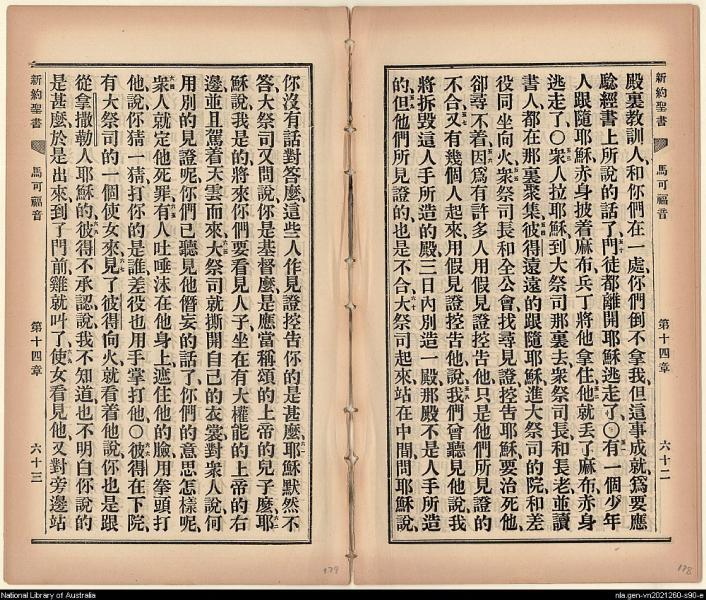 新約聖書
馬可福音
第十四章
六十二
殿裏教訓人、和你們在一處、你們倒不拿我、但這事成就、爲要應
騐經書上所說的話了、門徒都離開耶穌逃走了、〇有一個少年
人、跟隨耶穌、赤身披着麻布、兵丁將他拿住、他就丟了麻布、赤身
逃走了、〇衆人拉耶穌到大祭司那裏去、衆祭司長、和長老、並讀
書人、都在那裏聚集、彼得遠遠的跟隨耶穌、進大祭司的院、和差
役同坐向火、衆祭司長和全公會、找尋見證控告耶穌、要治死他、
卻尋不着、因爲有許多人用假見證控告他、只是他們所見證的
不合、又有幾個人起來、用假見證控告他說、我們曾聽見他說、我
將拆毀這人手所造的殿、三日內別造一殿、那殿不是人手所造
的、但他們所見證的、也是不合、大祭司起來、站在中間、問耶穌說、
你沒有話對答麼、這些人作見證控告你的是甚麼、耶穌默然不
答、大祭司又問說、你是基督麼、是應當稱頌的上帝的兒子麼、耶
穌說、我是的、將來你們要看見人子、坐在有大權能的上帝的右
邊、並且駕着天雲而來、大祭司就撕開自己的衣裳、對衆人說、何
用別的見證呢、你們已聽見他僭妄的話了、你們的意思怎樣呢、
衆人就定他死罪、有人吐唾沫在他身上、遮住他的臉、用拳頭打
他說、你猜一猜打你的是誰、差役也用手掌打他、〇彼得在下院、
有大祭司的一個使女來、見了彼得向火、就看着他說、你也是跟
從拿撒勒人耶穌的、彼得不承認、說、我不知道、也不明白你說的
是甚麼、於是出來、到了門前、雞就呌了、使女看見他、又對旁邊站
新約聖書
馬可福音
第十四章
六十三
179
178
National Library of Australia
nla.gen-vn2021260-s90-e